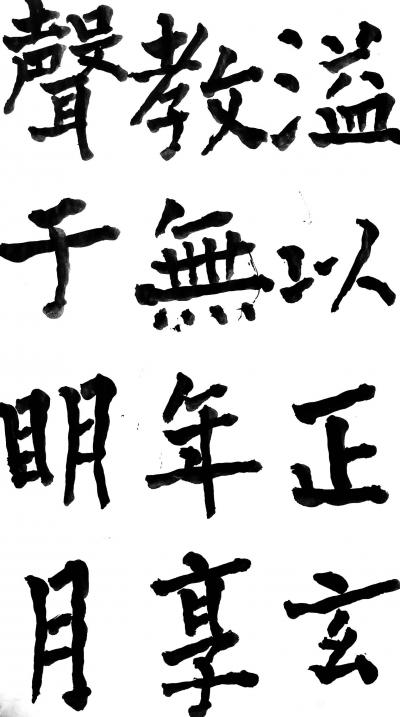 溢以正玄
教無年享
聲于明月